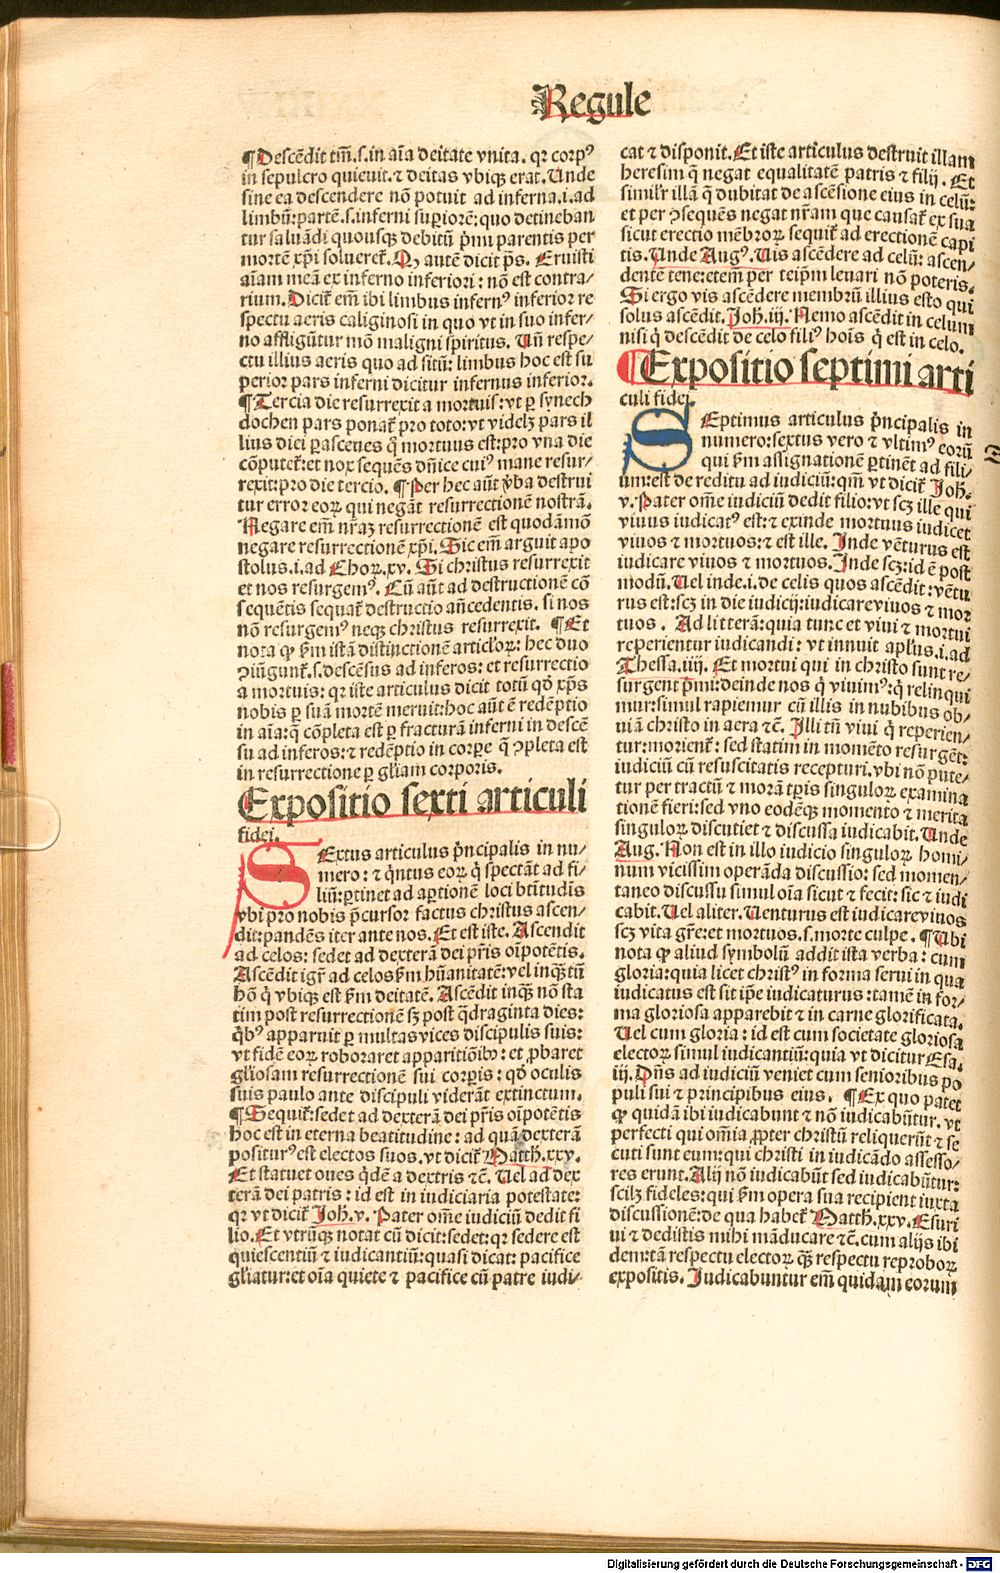 Regule
¶ Descēdit tm̄.s.in aīa deitate vnita. qꝛ corpꝰ
in sepulcro quieuit.⁊ deitas vbiqꝫ erat. Unde
sine ea descendere nō potuit ad inferna.i.ad
limbū:partē.s.inferni superiorē:quo detineban
tur saluādi quousqꝫ debitū p̄mi parentis per
mortē xp̄i solueret᷑. Qꝫ autē dicit ps̄. Eruisti
aīam meā ex inferno inferiori: nō est contra⸗
rium. Dicit᷑ em̄ ibi limbus infernꝰ inferior re
spectu aeris caliginosi in quo vt in suo infer⸗
no affligūtur mō maligni spiritus. Un̄ respe⸗
ctu illius aeris quo ad sitū: limbus hoc est su
perior pars inferni dicitur infernus inferior.
¶ Tercia die resurrexit a mortuis: vt ꝑ synech
dochen pars ponat᷑ pro toto:vt videlꝫ pars il
lius diei ꝑasceues q̄ mortuus est:pro vna die
cōputet᷑:et nox sequēs dn̄ice cuiꝰ mane resur⸗
rexit:pro die tercio. ¶ Per hec aūt v̄ba destrui
tur error eoꝝ qui negāt resurrectionē nostrā.
Negare em̄ nr̄aꝫ resurrectionē est quodāmō
negare resurrectionē xp̄i. Sic em̄ arguit apo
stolus.i.ad Choꝝ.xv. Si christus resurrexit
et nos resurgemꝰ. Cū aūt ad destructionē cō
sequētis sequat᷑ destructio an̄cedentis. si nos
nō resurgemꝰ neqꝫ christus resurrexit. ¶ Et
nota ꝙ ẜm istā distinctionē articꝉoꝝ: hec duo
ꝯiūgunt᷑.s.descēsus ad inferos: et resurrectio
a mortuis: qꝛ iste articulus dicit totū qd̓ xp̄s
nobis ꝑ suā mortē meruit:hoc aūt ē redēptio
in aīa:q̄ cōpleta est ꝑ fracturā inferni in descē
su ad inferos:⁊ redēptio in corꝑe q̄ ꝯpleta est
in resurrectione ꝑ gꝉiam corporis.
Expositio sexti articuli
fidei.
SExtus articulus p̄ncipalis in nu⸗
mero: ⁊ qͥntus eoꝝ q̄ spectāt ad fi⸗
liū:ꝑtinet ad aꝑtionē loci btītudīs
vbi pro nobis p̄cursor factus christus ascen⸗
dit:pandēs iter ante nos. Et est iste. Ascendit
ad celos: sedet ad dexterā dei pr̄is oīpotētis.
Ascēdit igr̄ ad celos ẜm hūanitatē:vel inqͣꝫtū
hō q̄ vbiqꝫ est ẜm deitatē. Ascēdit inqͣꝫ nō sta
tim post resurrectionē sꝫ post qͣdraginta dies:
qͥbꝰ apparuit ꝑ multas vices discipulis suis:
vt fidē eoꝝ roboraret apparitiōibꝰ: et ꝓbaret
gꝉiosam resurrectionē sui corꝑis: qd̓ oculis
suis paulo ante discipuli viderāt extinctum.
¶ Sequit᷑:sedet ad dexterā dei pr̄is oīpotētis
hoc est in eterna beatitudine: ad quā dexterā
positurꝰ est electos suos. vt dicit᷑ Matth̄.xxv.
Et statuet oues qͥdē a dextris ⁊c̄. Uel ad dex
terā dei patris: id est in iudiciaria potestate:
qꝛ vt dicit᷑ Joh̄.v. Pater om̄e iudiciū dedit fi
lio. Et vtrūqꝫ notat cū dicit:sedet:qꝛ sedere est
quiescentiū ⁊ iudicantiū:quasi dicat: pacifice
gꝉiatur:et oīa quiete ⁊ pacifice cū patre iudi⸗
cat ⁊ disponit. Et iste articulus destruit illam
heresim q̄ negat equalitatē patris ⁊ filij. Et
simiꝉr illā q̄ dubitat de ascēsione eius in celū:
et per ꝯsequēs negat nr̄am que causat᷑ ex sua
sicut erectio mēbroꝝ sequit᷑ ad erectionē capi
tis. Unde Augꝰ. Uis ascēdere ad celū: ascen⸗
dente tene:etem̄ per teip̄m leuari nō poteris.
Si ergo vis ascēdere membrū illius esto qui
solus ascēdit. Joh̄.iij. Nemo ascēdit in celum
nisi q̄ descēdit de celo filiꝰ hoīs q̄ est in celo.
¶ Expositio septimi arti
culi fidei.
SEptimus articulus p̄ncipalis in
numero:sextus vero ⁊ vltimꝰ eorū
qui ẜm assignationē ꝑtinēt ad fili⸗
um:est de reditu ad iudiciū:qm̄ vt dicit᷑ Joh̄.
v. Pater om̄e iudiciū dedit filio:vt scꝫ ille qui
viuus iudicatꝰ est:⁊ exinde mortuus iudicet
viuos ⁊ mortuos:⁊ est ille. Inde vēturus est
iudicare viuos ⁊ mortuos. Inde scꝫ:id ē post
modū. Uel inde.i.de celis quos ascēdit:vētu
rus est:scꝫ in die iudicij:iudicare viuos ⁊ mor
tuos. Ad litterā:quia tunc et viui ⁊ mortui
reperientur iudicandi: vt innuit apꝉus.i.ad
Thessa.iiij. Et mortui qui in christo sunt re⸗
surgent p̄mi:deinde nos q̄ viuimꝰ:q̄ relinqui
mur:simul rapiemur cū illis in nubibus ob⸗
uiā christo in aera ⁊c̄. Illi tn̄ viui q̄ reperien⸗
tur:morient᷑: sed statim in momēto resurgēt:
iudiciū cū resuscitatis recepturi.vbi nō pute⸗
tur per tractū ⁊ morā tp̄is singuloꝝ examina
tionē fieri:sed vno eodēqꝫ momento ⁊ merita
singuloꝝ discutiet ⁊ discussa iudicabit. Unde
Aug. Non est in illo iudicio singuloꝝ homi⸗
num vicissim operāda discussio: sed momen⸗
taneo discussu simul oīa sicut ⁊ fecit: sic ⁊ iudi
cabit. Uel aliter. Uenturus est iudicare viuos
scꝫ vita gr̄e:et mortuos.s.morte culpe. ¶ Ubi
nota ꝙ aliud symbolū addit ista verba: cum
gloria:quia licet christꝰ in forma serui in qua
iudicatus est sit ip̄e iudicaturus: tamē in for⸗
ma gloriosa apparebit ⁊ in carne glorificata.
Uel cum gloria: id est cum societate gloriosa
electoꝝ simul iudicantiū:quia vt dicitur Esa.
iij. Dn̄s ad iudiciū veniet cum senioribus po
puli sui ⁊ principibus eius. ¶ Ex quo patet
ꝙ quidā ibi iudicabunt ⁊ nō iudicabūtur. vt
perfecti qui om̄ia ꝓpter christū reliquerūt ⁊ se
cuti sunt eum:qui christi in iudicādo assesso⸗
res erunt. Alij nō iudicabūt sed iudicabūtur:
scilꝫ fideles:qui ẜm opera sua recipient iuxta
discussionē:de qua habet᷑ Matth̄.xxv. Esuri
ui ⁊ dedistis mihi māducare ⁊c̄.cum alijs ibi
dem:tā respectu electoꝝ qͣꝫ respectu reproboꝝ
expositis. Judicabuntur em̄ quidam eorum
Digitalisierung gefördert durch die Deutsche Forschungsgemeinschaft - DFG